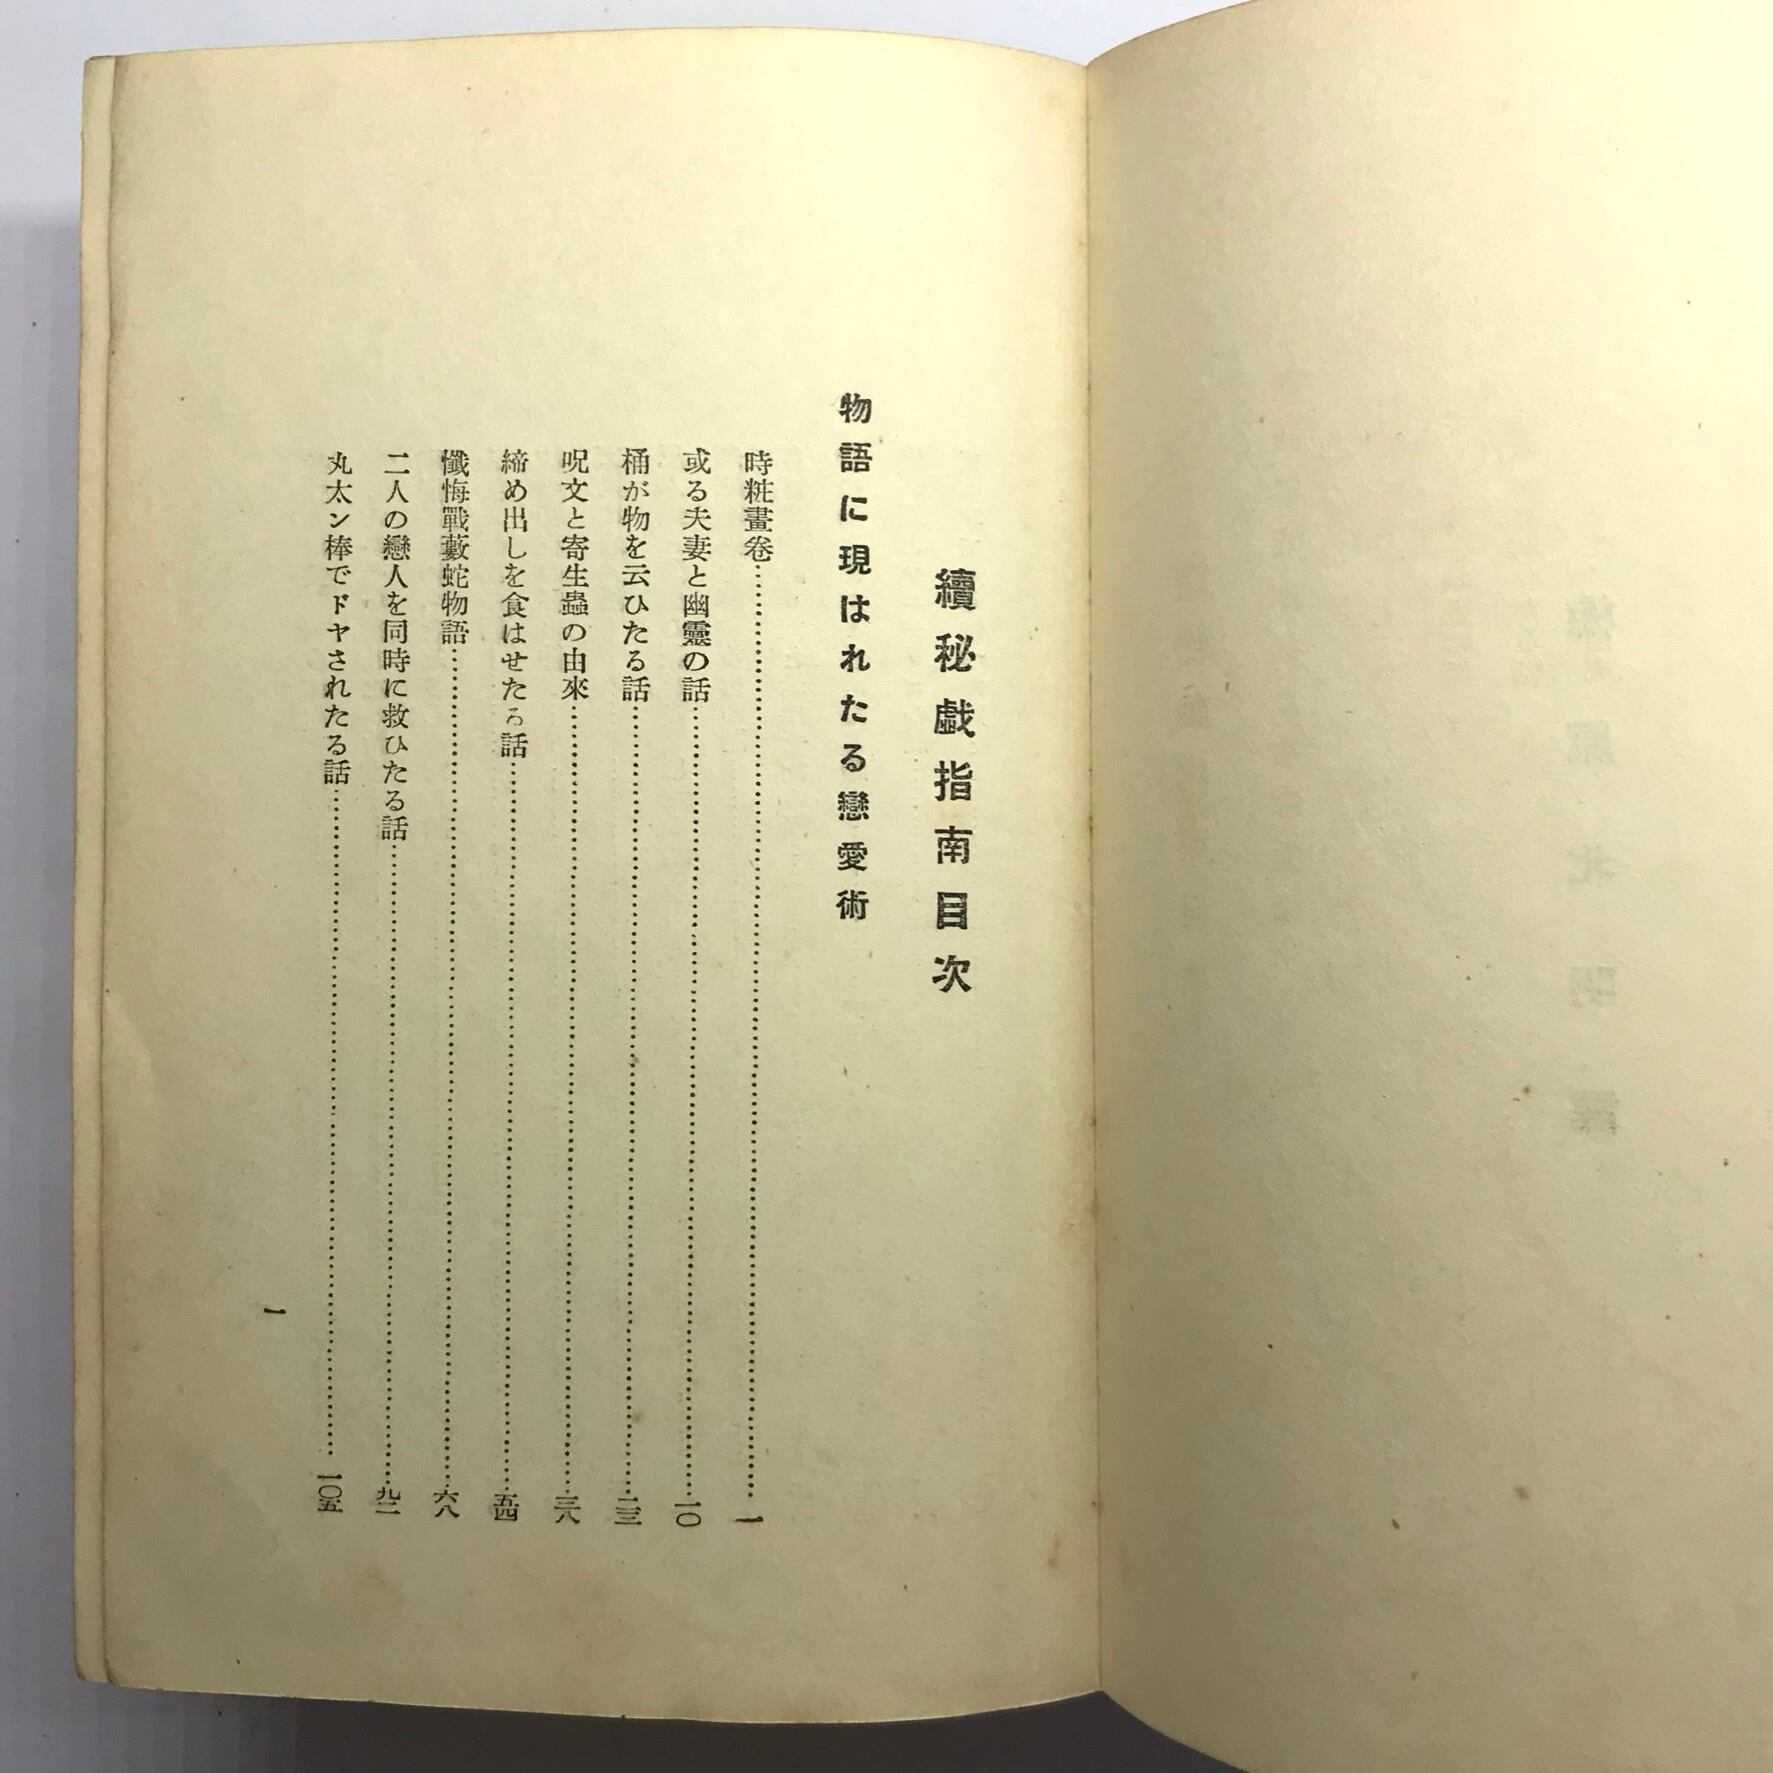 續秘戯指南目次
物語に現はれたる戀愛術
時粧畫卷……一
或る夫妻と幽靈の話……一〇
桶が物を云ひたる話……二三
呪文と寄生蟲の由來……三八
締め出しを食はせたる話……五四
懺悔戰藪蛇物語……六八
二人の戀人を同時に救ひたる話……九二
丸太ン棒でドヤされたる話……一〇五
一